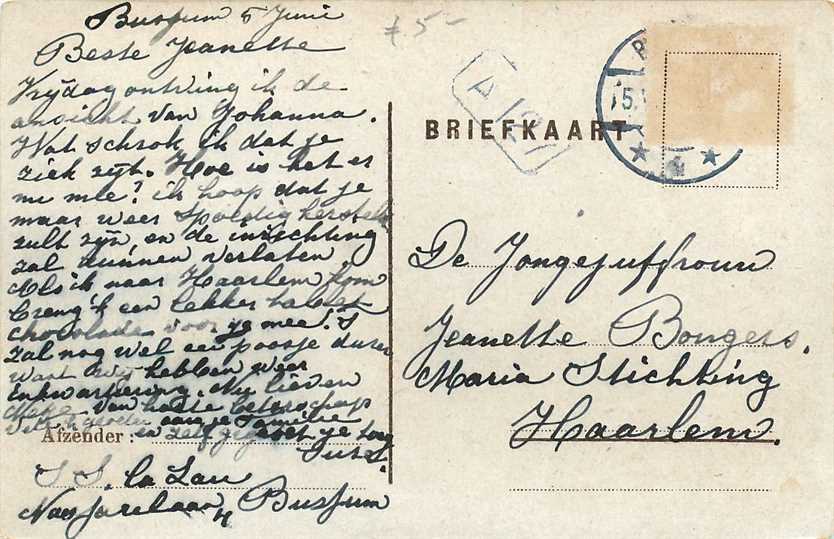 Bussum 5 Juni
Beste Jeanette
Vrijdag ontving ik de
ansicht van Johanna.
Wat schrok ik dat je
ziek zijt. Hoe is het er
nu mee? ik hoop dat je
maar weer spoedig hersteld
zult zijn, en de inrichting
zal kunnen verlaten.
Als ik naar Haarlem kom
breng ik een lekker
chocolade voor je mee.
zal nog wel een poosje duren
want wij hebben weer
inkwartiering. Nu lieve
van harte beterschap
aan je familie
en zelf
Afzender:
la Lau
Bussum
£ 5-
A 127
BRIEFKAART
De Jongejuffrouw
Jeanette Bongers.
Maria Stichting
Haarlem.